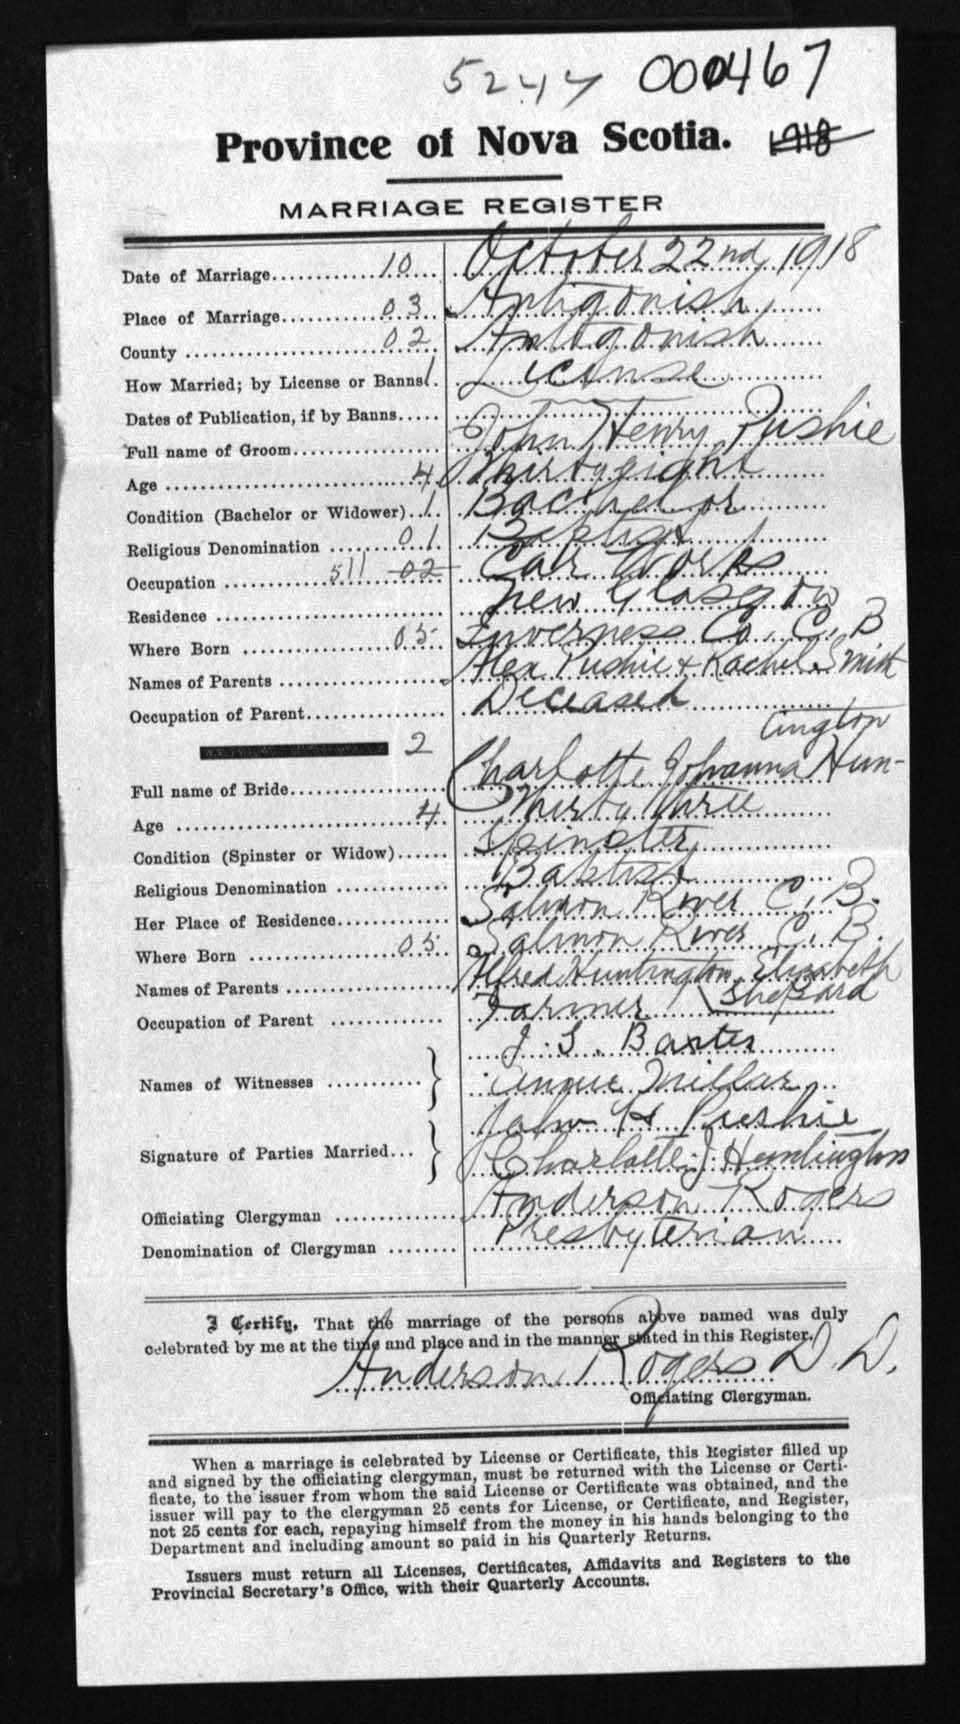 5244 000467
Province of Nova Scotia. 1918
MARRIAGE REGISTER
Date of Marriage 10 October 22nd, 1918
Place of Marriage 03 Antigonish
County 02 Antigonish
How Married; by License or Banns 1 License
Dates of Publication, if by Banns
Full name of Groom John Henry Pushie
Age 4 Thirty eight
Condition (Bachelor or Widower) 1 Bachelor
Religious Denomination 01 Baptist
Occupation 511 02 Car Works
Residence New Glasgow
Where Born 05 Inverness Co. C. B
Names of Parents Alex Pushie + Rachel Smith
Occupation of Parent Deceased
2 tington
Full name of Bride Charlotte Johanna Hun-
Age 4 Thirty three
Condition (Spinster or Widow) Spinster
Religious Denomination Baptist
Her Place of Residence Salmon River C. B.
Where Born 05 Salmon River C. B.
Names of Parents Alfred Huntington, Elizabeth
Occupation of Parent Farmer Shepard
J. S. Baxter
Names of Witnesses Annie Millar
John H Pushie
Signature of Parties Married Charlotte J Huntington
Officiating Clergyman Anderson Rogers
Denomination of Clergyman Presbyterian
I Certify, That the marriage of the persons above named was duly
celebrated by me at the time and place and in the manner stated in this Register.
Anderson Rogers D. D.
Officiating Clergyman.
When a marriage is celebrated by License or Certificate, this Register filled up
and signed by the officiating clergyman, must be returned with the License or Certi-
ficate, to the issuer from whom the said License or Certificate was obtained, and the
issuer will pay to the clergyman 25 cents for License, or Certificate, and Register,
not 25 cents for each, repaying himself from the money in his hands belonging to the
Department and including amount so paid in his Quarterly Returns.
Issuers must return all Licenses, Certificates, Affidavits and Registers to the
Provincial Secretary's Office, with their Quarterly Accounts.